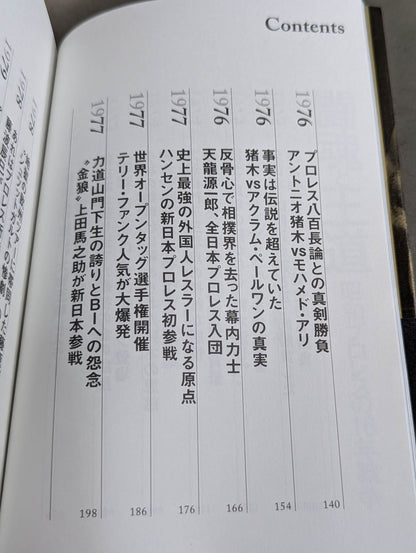 Contents
1976
プロレス八百長論との真剣勝負
アントニオ猪木vsモハメド・アリ
140
1976
事実は伝説を超えていた
猪木vsアクラム・ペールワンの真実
154
1976
反骨心で相撲界を去った幕内力士
天龍源一郎、全日本プロレス入団
166
1977
史上最強の外国人レスラーになる原点
ハンセンの新日本プロレス初参戦
176
1977
世界オープンタッグ選手権開催
テリー・ファンク人気が大爆発
186
1977
力道山門下生の誇りとBIへの怨念
“金狼”上田馬之助が新日本参戦
198